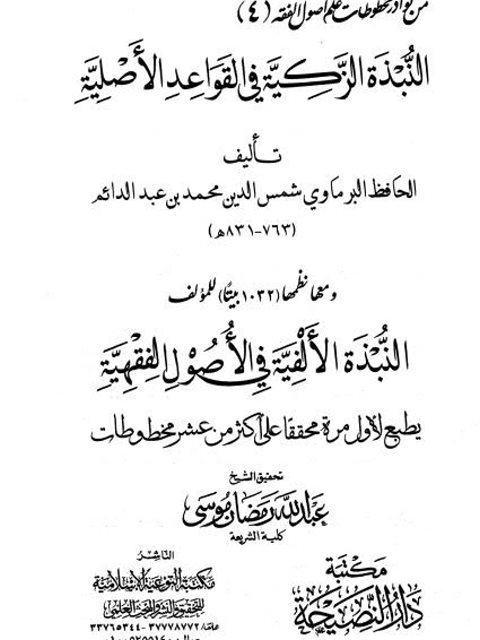 من نوادر مخطوطات علم أصول الفقه (٤)
النُّبْذَة الزَّكِيَّة في القَوَاعِدِ الأَصْلِيَّةِ
تأليف
الحافظ البرماوي شمس الدين محمد بن عبد الدائم
(٧٦٣-٨٣١ه)
ومعها نظمها (١٠٣٢ بيتًا) للمؤلف
النُّبْذَة الأَلْفِيَّة في الأُصُولِ الفِقْهِيَّةِ
يطبع لأول مرة محققا على أكثر من عشر مخطوطات
تحقيق الشيخ
عَبدالله رَمَضَان مُوسَى
كلية الشريعة
الناشر
مكتبة التوعية الإسلامية
للتحقيق والنشر والبحث العلمي
٣٧٧٧٨٧٧٢ - ٣٣٧٦٥٣٤٤
مكتبة
دار النصيحة